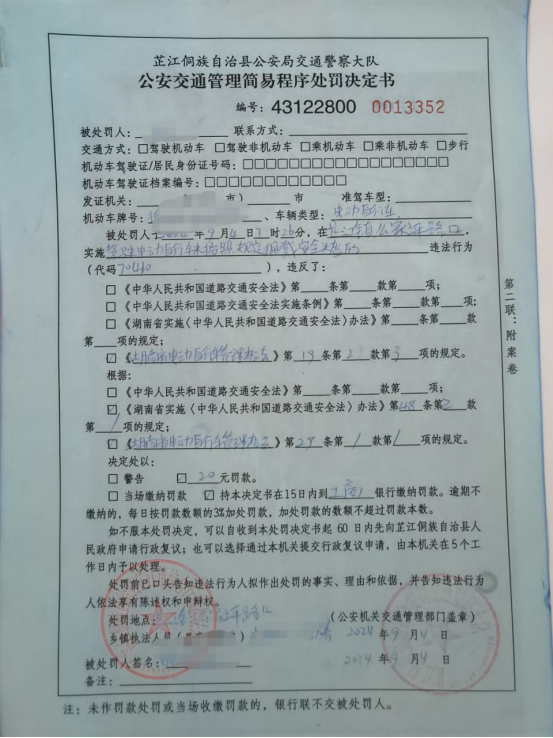 芷江侗族自治县公安局交通警察大队
公安交通管理简易程序处罚决定书
编号：43122800 0013352
被处罚人： 联系方式：
交通方式：□驾驶机动车 □驾驶非机动车 □乘机动车 □乘非机动车 □步行
机动车驾驶证/居民身份证号码：□□□□□□□□□□□□□□□□□□
机动车驾驶证档案编号：□□□□□□□□□□□□
发证机关： 市） 市 准驾车型：
机动车牌号： 、车辆类型：电动自行车
被处罚人于2024年9月4日7时26分，在芷江镇公家车路口
实施 驾驶电动自行车未按照规定佩戴安全头盔的 违法行为
（代码70410 ），违反了：
□《中华人民共和国道路交通安全法》第 条第 款第 项；
□《中华人民共和国道路交通安全法实施条例》第 条第 款第 项；
□《湖南省实施〈中华人民共和国道路交通安全法〉办法》第 条第 款
第 项的规定；
☑《湖南省电动自行车管理办法》第19条第2款第3项的规定。
根据：
□《中华人民共和国道路交通安全法》第 条第 款第 项；
☑《湖南省实施〈中华人民共和国道路交通安全法〉办法》第48条第2款
第1项的规定；
☑《湖南省电动自行车管理办法》第29条第1款第1项的规定。
决定处以：
□ 警告 ☑ 20 元罚款。
□ 当场缴纳罚款 ☑ 持本决定书在15日内到工商银行缴纳罚款。逾期不
缴纳的，每日按罚款数额的3%加处罚款，加处罚款的数额不超过罚款本数。
如不服本处罚决定，可以自收到本处罚决定书起 60 日内先向芷江侗族自治县人
民政府申请行政复议；也可以选择通过本机关提交行政复议申请，由本机关在5个工
作日内予以处理。
处罚前已口头告知违法行为人拟作出处罚的事实、理由和依据，并告知违法行为
人依法享有陈述权和申辩权。
处罚地点： 车路口 （公安机关交通管理部门盖章）
乡镇执法人员 2024年9月4日
被处罚人签名： 2024年9月4日
备注：
注：未作罚款处罚或当场收缴罚款的，银行联不交被处罚人。
第二联：附案卷